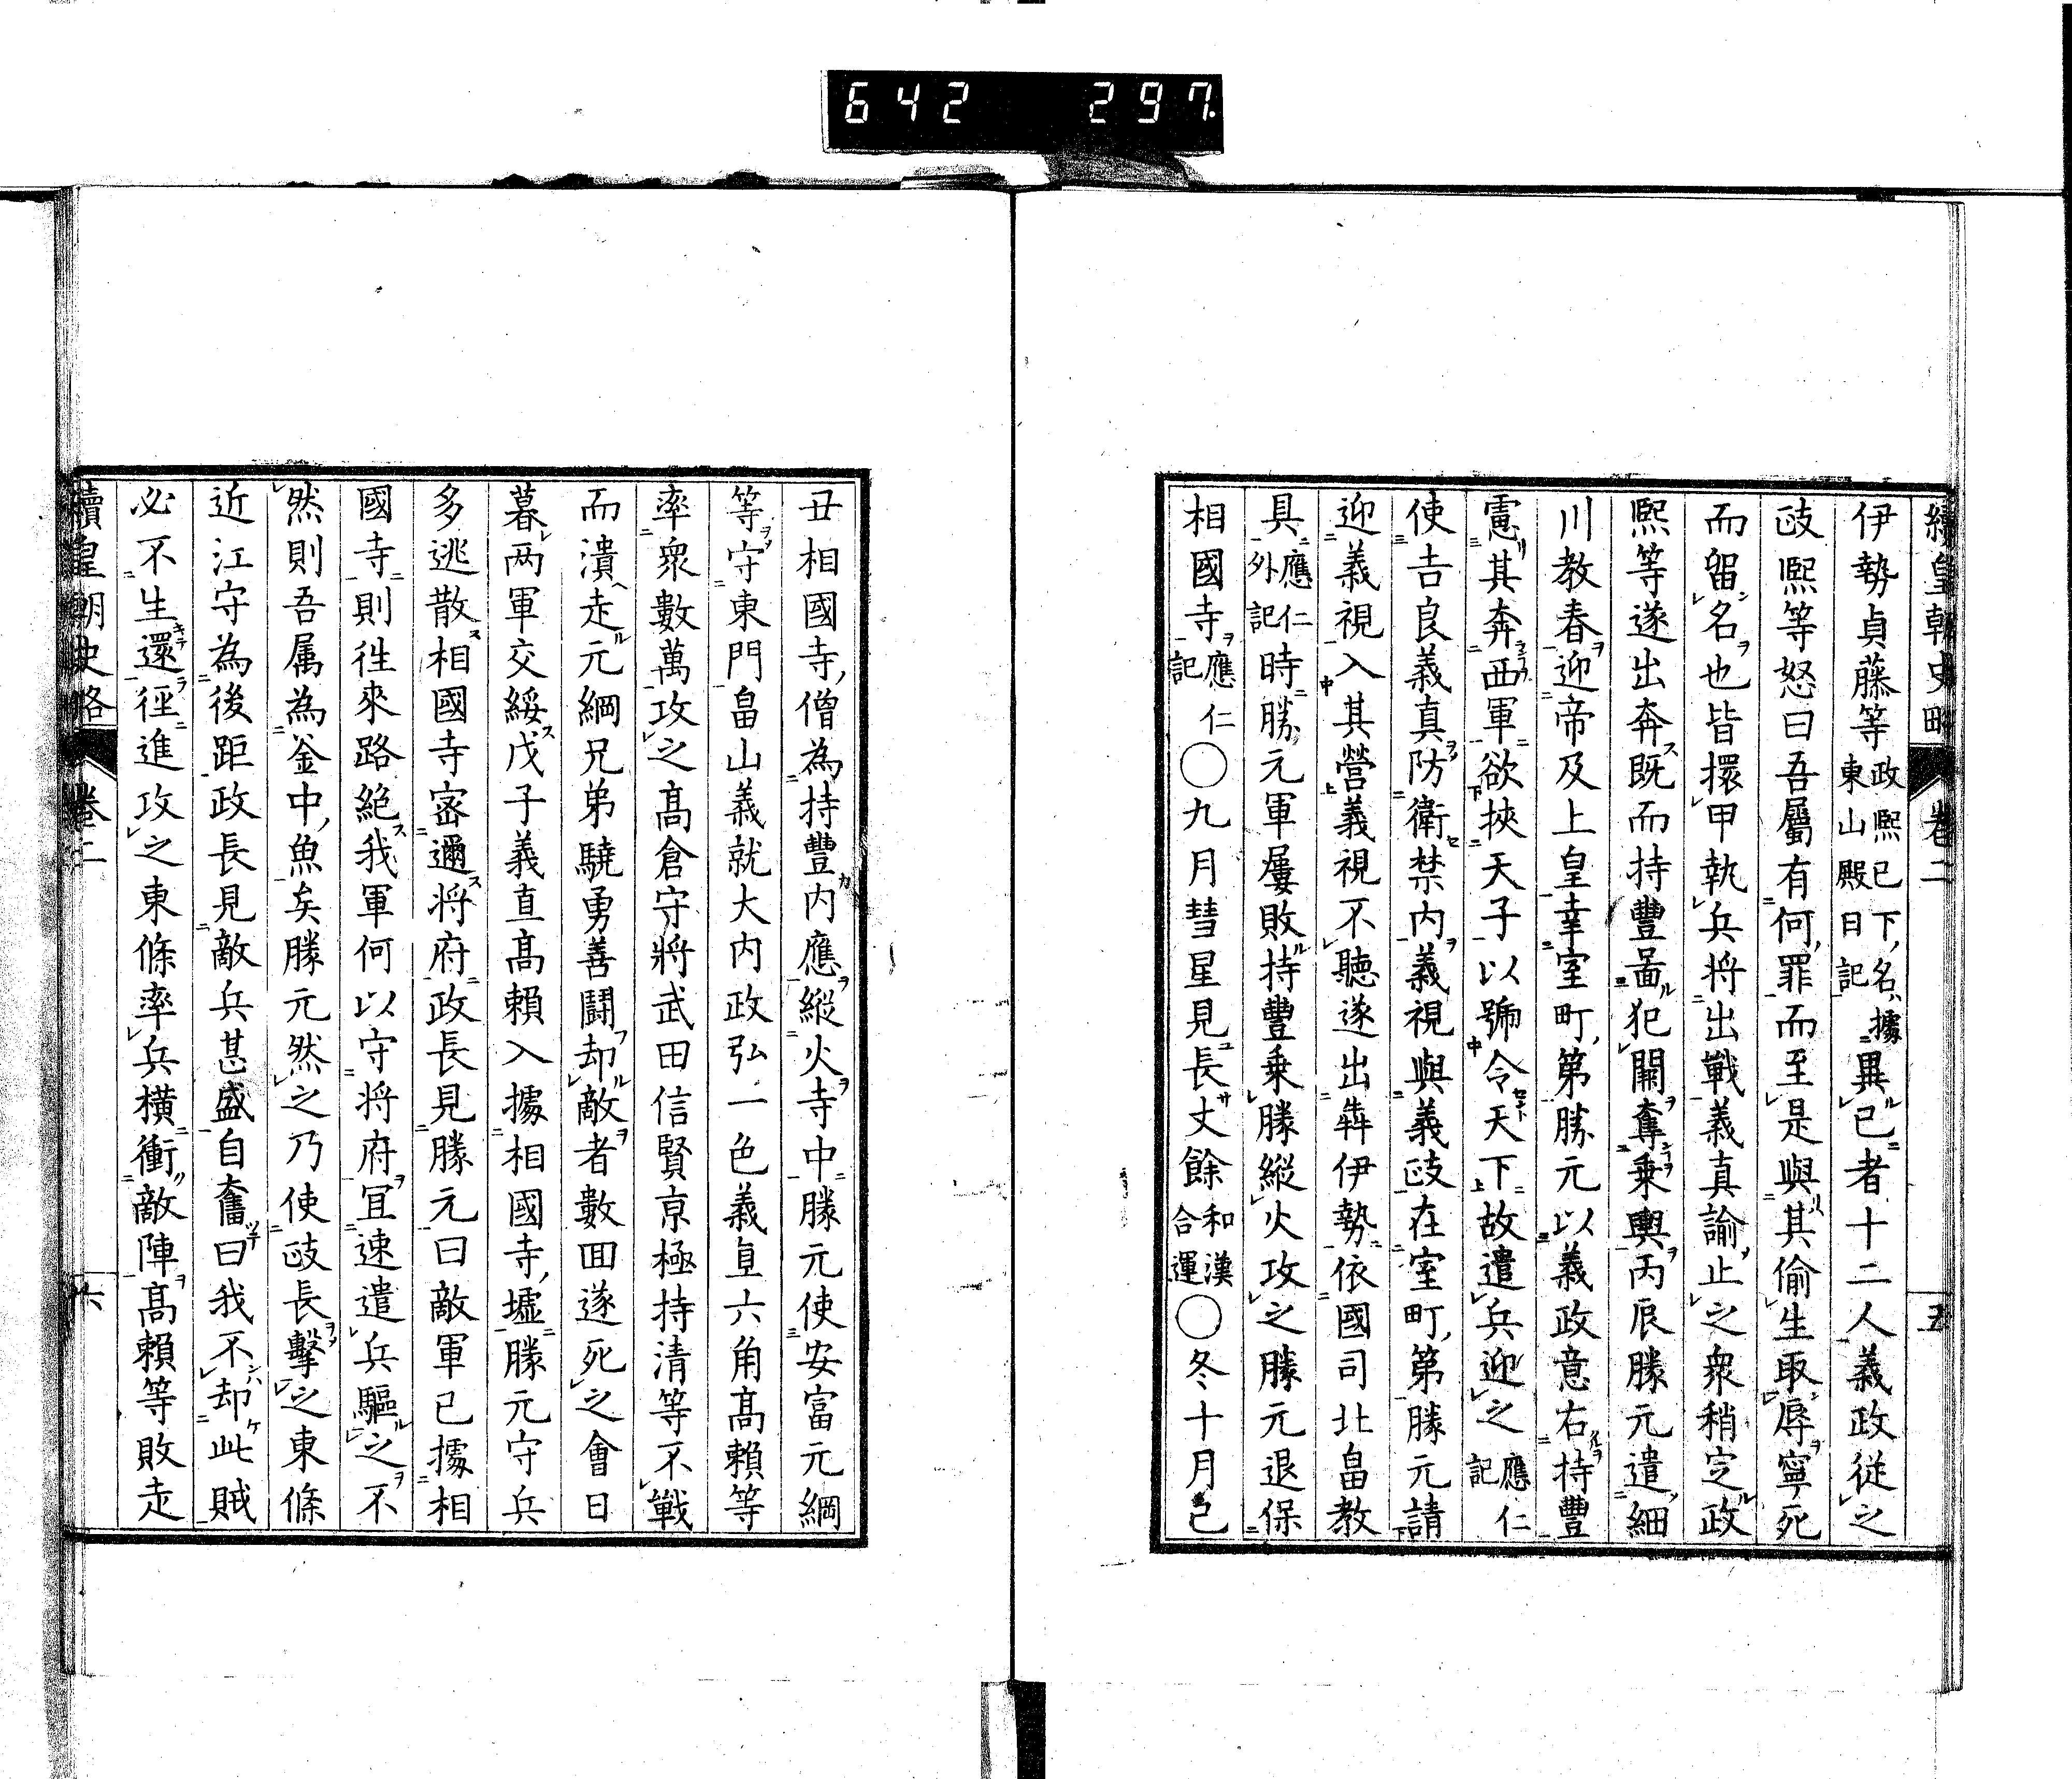 642 297
續皇朝史略 卷二 五
伊勢貞藤等政熙已下名據東山殿日記異已者十二人義政從之
政熙等怒曰吾屬有何罪而至是與其偷生取辱寧死
而留名也皆擐甲執兵将出戰義真諭止之衆稍定政
熙等遂出奔既而持豐啚犯闕奪乗輿丙辰勝元遣細
川教春迎帝及上皇幸室町第勝元以義政意右持豐
憲其奔西軍欲挾天子以號令天下故遣兵迎之應仁記
使吉良義真防衛禁内義視與義政在室町第勝元請
迎義視入其營義視不聽遂出犇伊勢依國司北畠教
具應仁外記時勝元軍屢敗持豐乗勝縱火攻之勝元退保
相國寺應仁記〇九月彗星見長丈餘和漢合運〇冬十月己
丑相國寺僧為持豐内應縦火寺中勝元使安富元綱
等守東門畠山義就大内政弘一色義直六角高賴等
率衆數萬攻之高倉守將武田信賢京極持清等不戰
而潰走元綱兄弟驍勇善闘却敵者數回遂死之會日
暮两軍交綏戊子義直高賴入據相國寺墟勝元守兵
多逃散相國寺密邇将府政長見勝元曰敵軍已據相
國寺則徃來路絶我軍何以守将府宜速遣兵驅之不
然則吾属為釜中魚矣勝元然之乃使政長擊之東條
近江守為後距政長見敵兵甚盛自奮曰我不却此賊
必不生還徑進攻之東條率兵横衝敵陣高賴等敗走
續皇朝史略 卷二 六